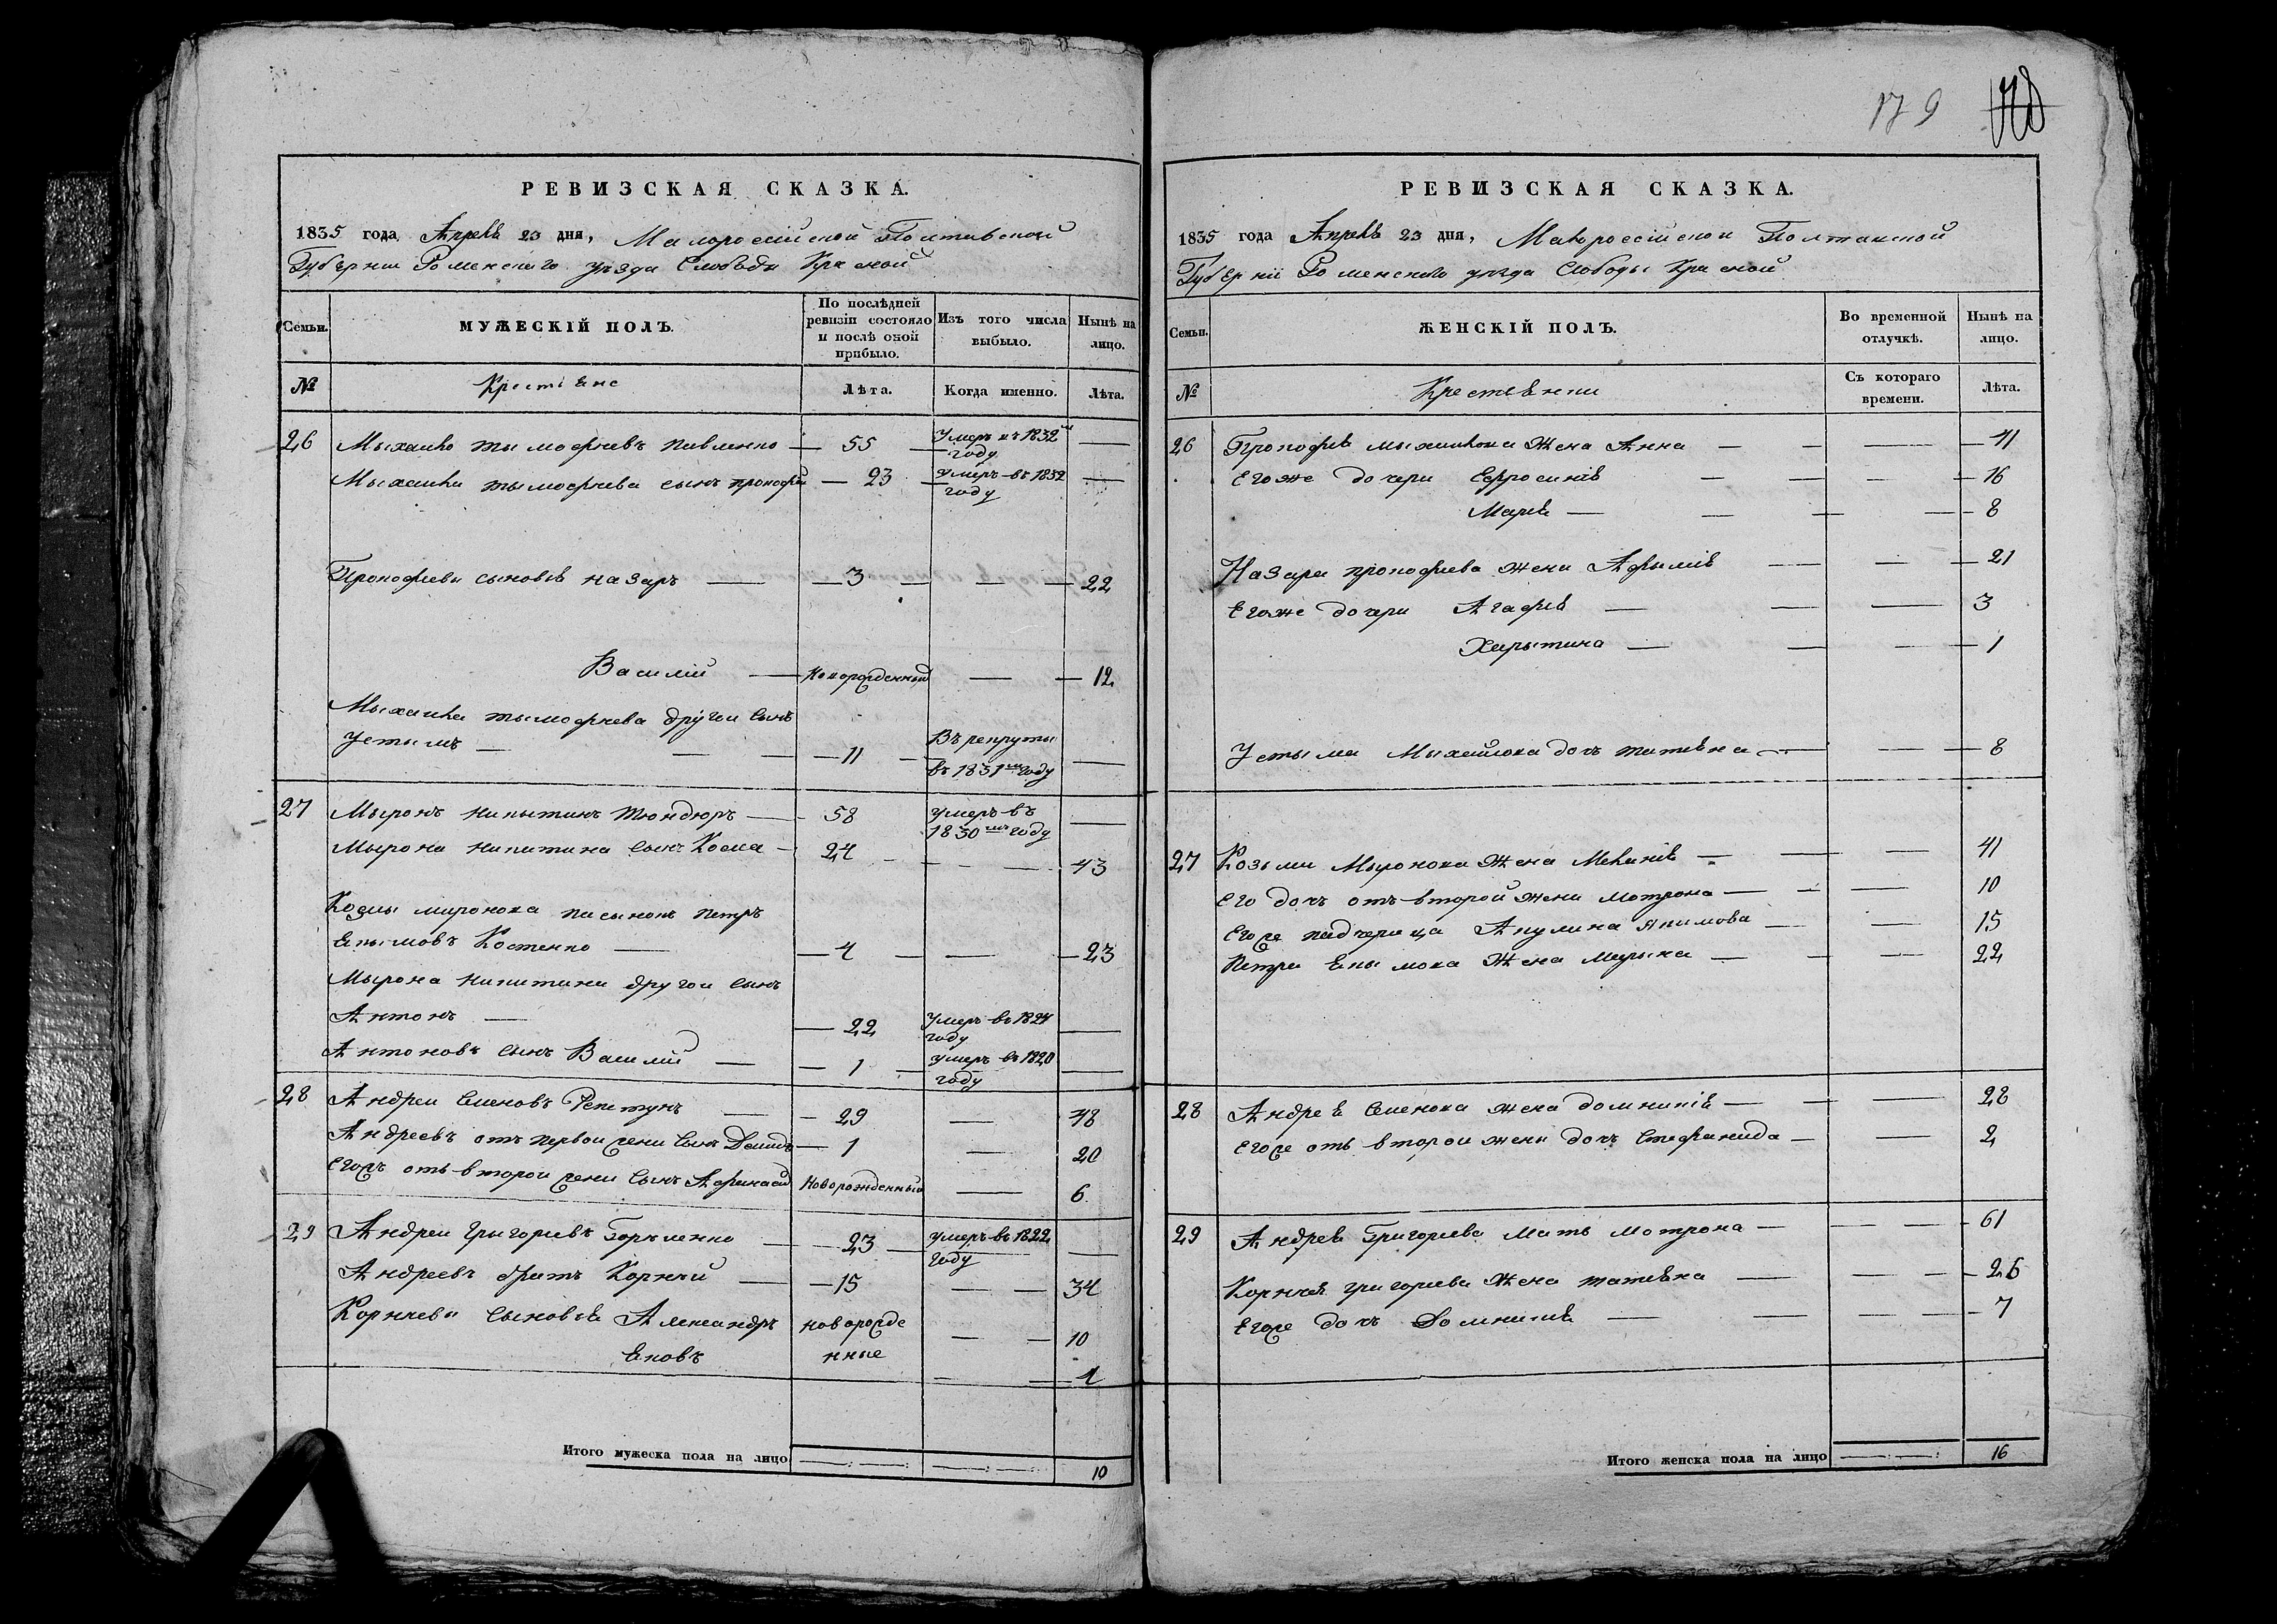 РЕВИЗСКАЯ СКАЗКА.
1835 года Апреля 23 дня, Малороссійской Полтавской
Губерніи Роменского уезда Слободы Красной
Семьи.
МУЖЕСКІЙ ПОЛЪ.
По послѣдней ревизіи состояло и послѣ оной прибыло.
Изъ того числа выбыло.
Нынѣ на лицо.
№
Крестьяне
Лѣта.
Когда именно.
Лѣта.
26 Мыхаило тымофиевъ павленко — 55 Умеръ въ 1832м году —
Мыхаила тымофиева сынъ прокофей — 23 — Умеръ въ 1832 году —
Прокофиевы сыновья назаръ — 3 — — 22
Василій — Новорожденный — 12
Мыхаила тымофиева другои сынъ
устымъ — — 11 — Въ рекруты въ 1831м году —
27 Мыронъ никытинъ тюндюръ — 58 умеръ въ 1830мъ году —
Мырона никитина сынъ Косма — 24 — — 43
Козмы миронова пасынокъ петръ
Екымовъ Костенко — 4 — — 23
Мырона никитина другои сынъ
Антонъ — — 22 Умеръ въ 1824 году —
Антоновъ сынъ Василій — 1 — умеръ въ 1820 году —
28 Андреи Семеновъ Репетунъ — 29 — 48
Андреевъ отъ первои жени сынъ Демидъ — 1 — 20
Егожъ отъ второи жени сынъ Афанасій Новорожденный — 6
29 Андреи Григориевъ — 23 — умеръ въ 1822 году —
Андреевъ братъ Корнѣй — 15 — 34
Корнѣевы сыновья Александръ новорожде — 10
Яковъ нные — 1
Итого мужеска пола на лицо — 10
179
РЕВИЗСКАЯ СКАЗКА.
1835 года Апреля 23 дня, Малороссійской Полтавской
Губерніи Роменского уезда Слободы Красной
Семьи.
ЖЕНСКІЙ ПОЛЪ.
Во временной отлучкѣ.
Нынѣ на лицо.
№
Крестьянки
Съ котораго времени.
Лѣта.
26 Прокофия мыхаилова Жена Анна — — 41
Егоже дочери Ефросинія — — 16
Марія — — 8
Назара прокофиева жена Афымія — — 21
Егоже дочери Агафія — — 3
Харытина — — 1
Устыма Мыхайлова дочъ татьяна — — 8
27 Козьми Мыронова Жена Меланія — — 41
Его дочъ отъ второй жени мотрона — — 10
Егоже падчерица Акулина Якимова — — 15
Петра Екымова Жена Марына — — 22
28 Андрея Семенова жена домникія — — 28
Егоже отъ второи жени дочъ Стефанида — — 2
29 Андрея Григориева мать мотрона — — 61
Корнѣя григориева Жена татьяна — — 26
Егоже дочъ Домникія — — 7
Итого женска пола на лицо — 16